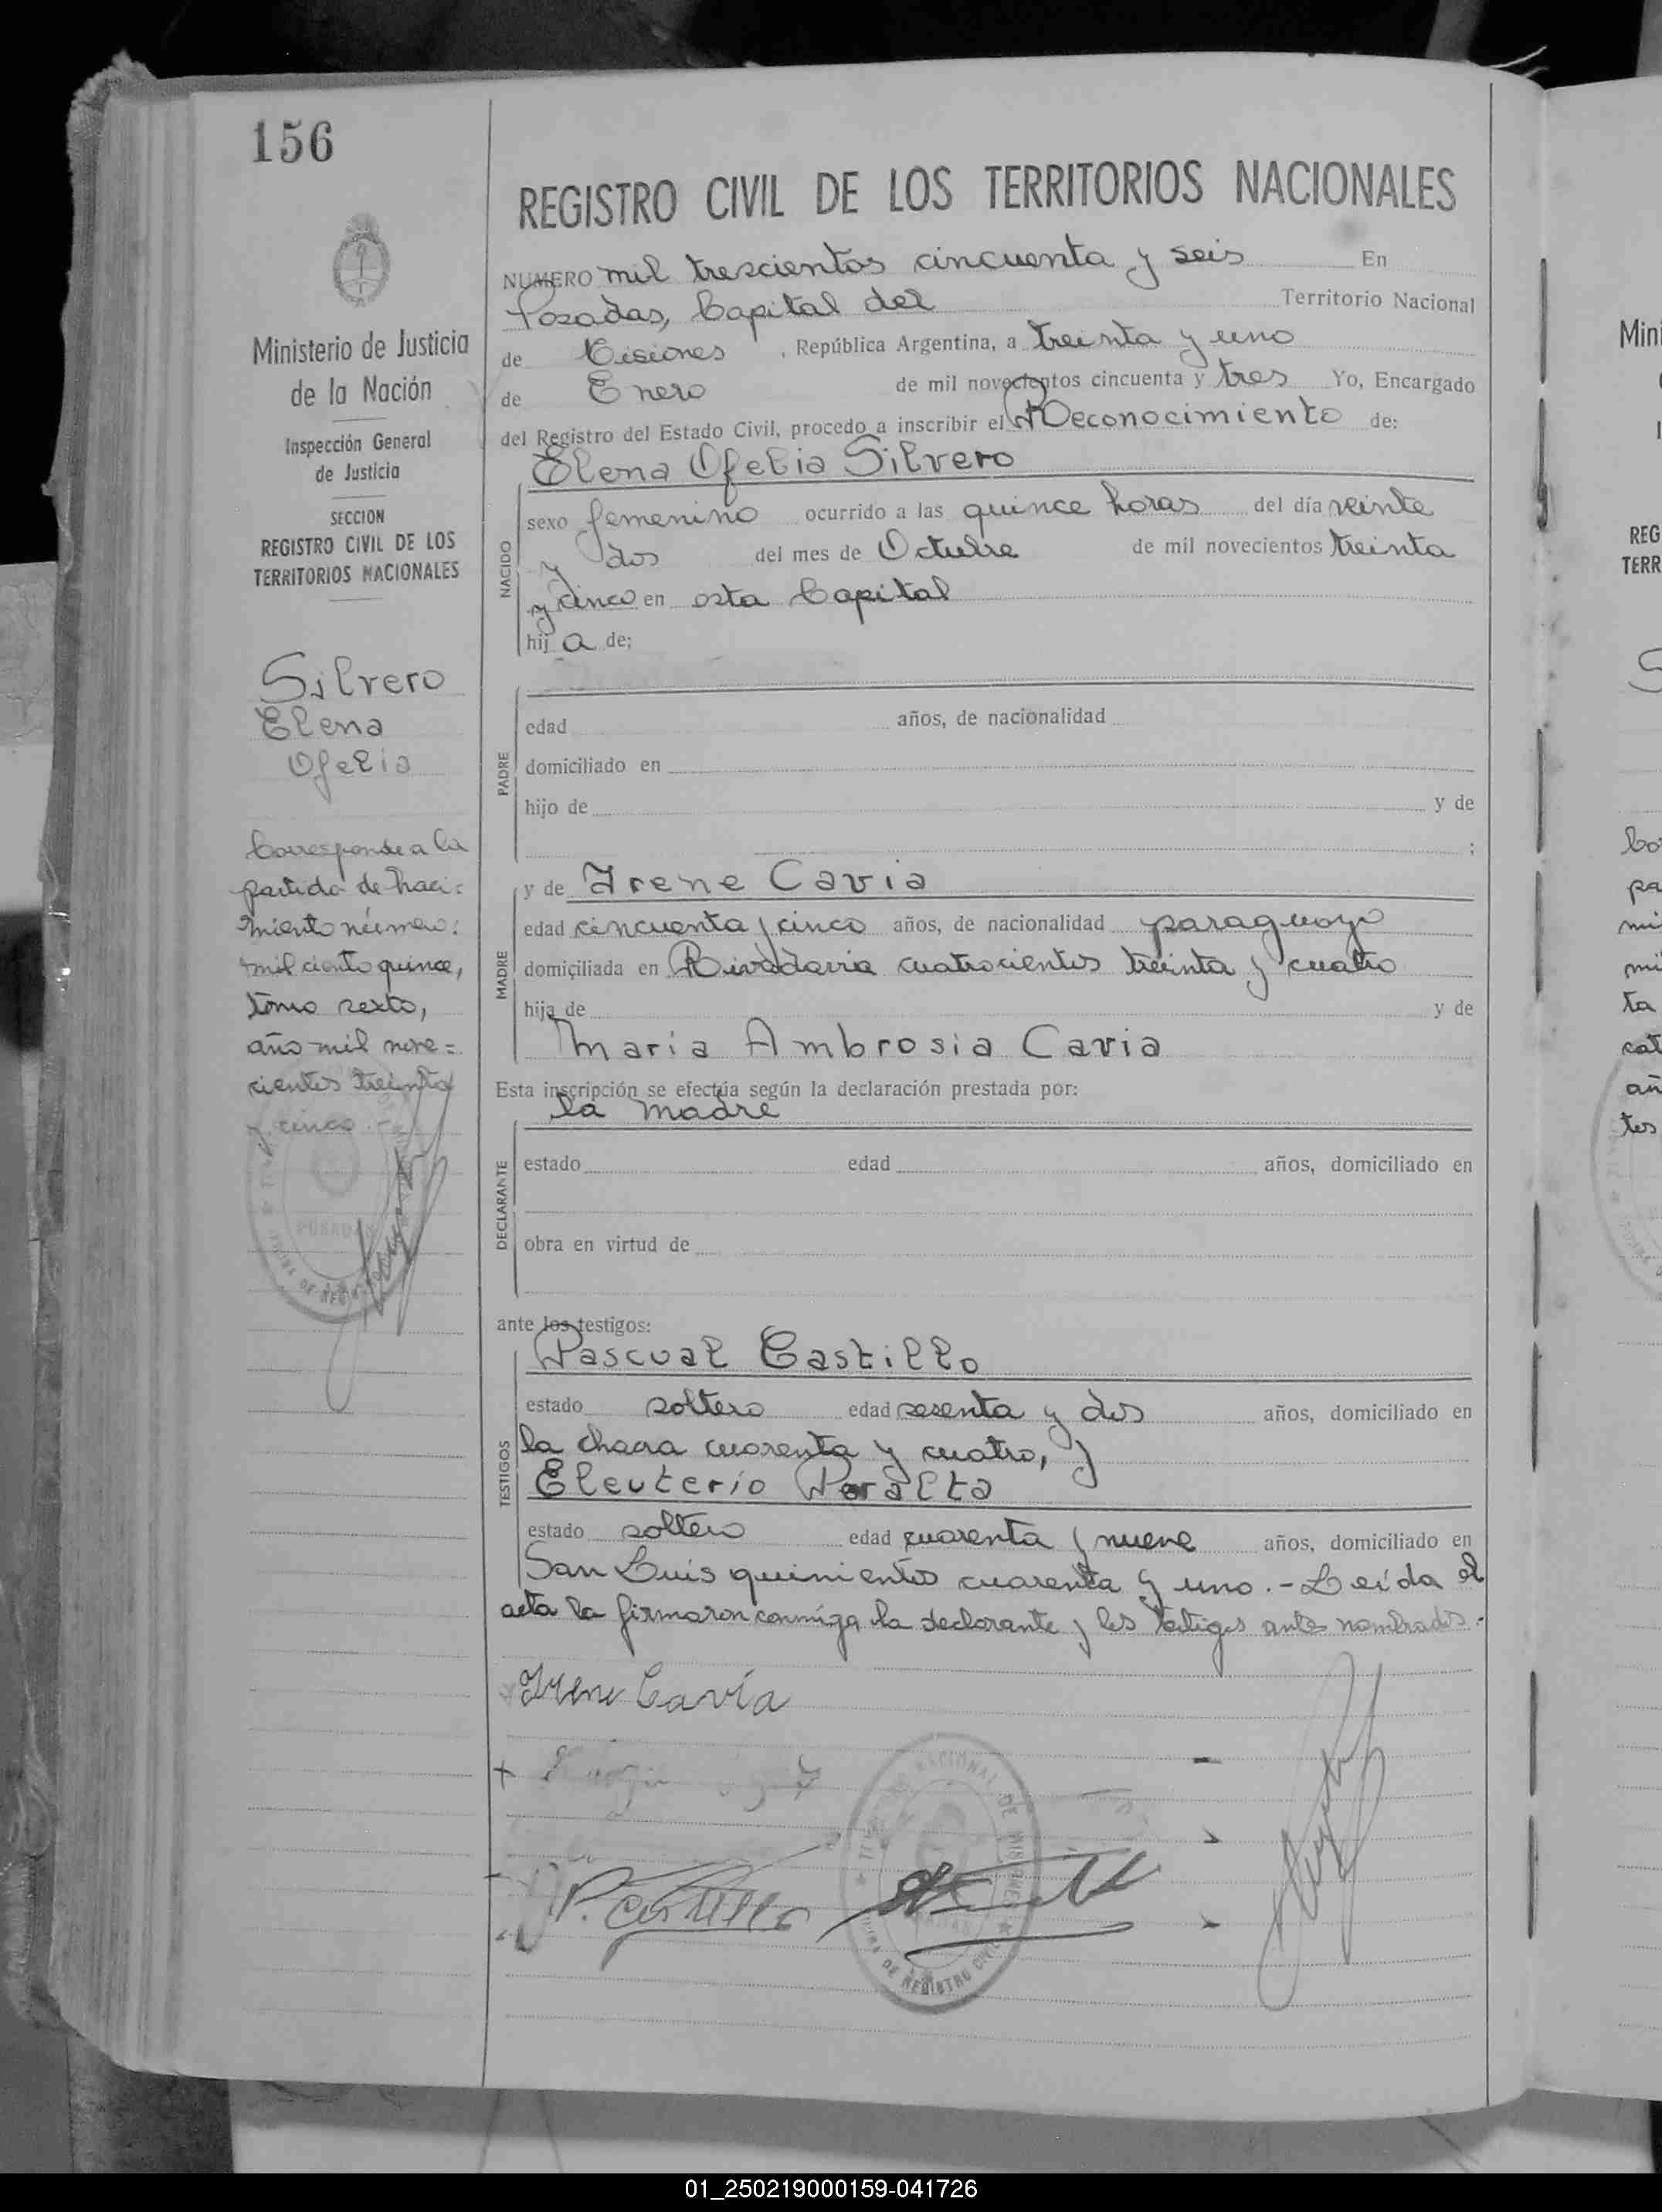 156
REGISTRO CIVIL DE LOS TERRITORIOS NACIONALES
NUMERO mil trescientos cincuenta y seis En
Posadas, Capital del Territorio Nacional
de Misiones, República Argentina, a treinta y uno
de Enero de mil novecientos cincuenta y tres Yo, Encargado
del Registro del Estado Civil, procedo a inscribir el Reconocimiento de:
Elena Ofelia Silvero
NACIDO
sexo femenino ocurrido a las quince horas del día veinte
y dos del mes de Octubre de mil novecientos treinta
y cinco en esta Capital
hij a de;
PADRE
edad años, de nacionalidad
domiciliado en
hijo de y de
;
MADRE
y de Irene Cavia
edad cincuenta y cinco años, de nacionalidad paraguaya
domiciliada en Rivadavia cuatrocientos treinta y cuatro
hija de y de
Maria Ambrosia Cavia
Esta inscripción se efectúa según la declaración prestada por:
la madre
DECLARANTE
estado edad años, domiciliado en
obra en virtud de
ante los testigos:
TESTIGOS
Pascual Castillo
estado soltero edad sesenta y dos años, domiciliado en
la chacra cuarenta y cuatro, y
Eleuterio Peralta
estado soltero edad cuarenta y nueve años, domiciliado en
San Luis quinientos cuarenta y uno.- Leída el
acta la firmaron conmigo la declarante y los testigos ante nombrados.
Irene Cavía
P. Castillo
Ministerio de Justicia
de la Nación
Inspección General
de Justicia
SECCION
REGISTRO CIVIL DE LOS
TERRITORIOS NACIONALES
Silvero
Elena
Ofelia
Corresponde a la
partida de naci=
miento número:
mil ciento quince,
tomo sexto,
año mil nove=
cientos treinta
y cinco.-
POSADAS
NACIONAL DE MISIONES
DE REGISTRO CIVIL
Mini
REG
TERR
S
Co
pa
mi
mi
ta
cat
añ
tos
01_250219000159-041726